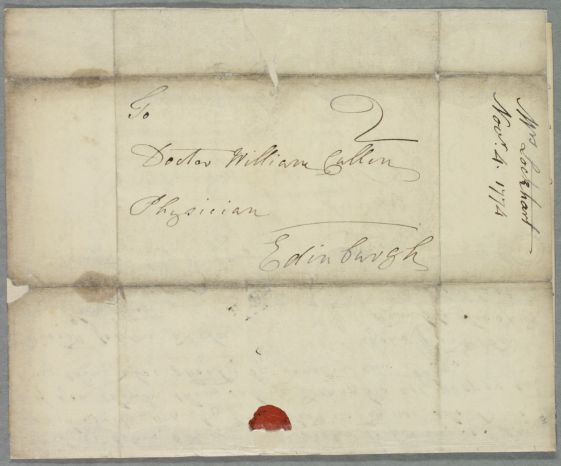 To
2
Doctor William Cullen
Physician
Edinburgh
Mrs Lockhart
Nov. 4. 1774